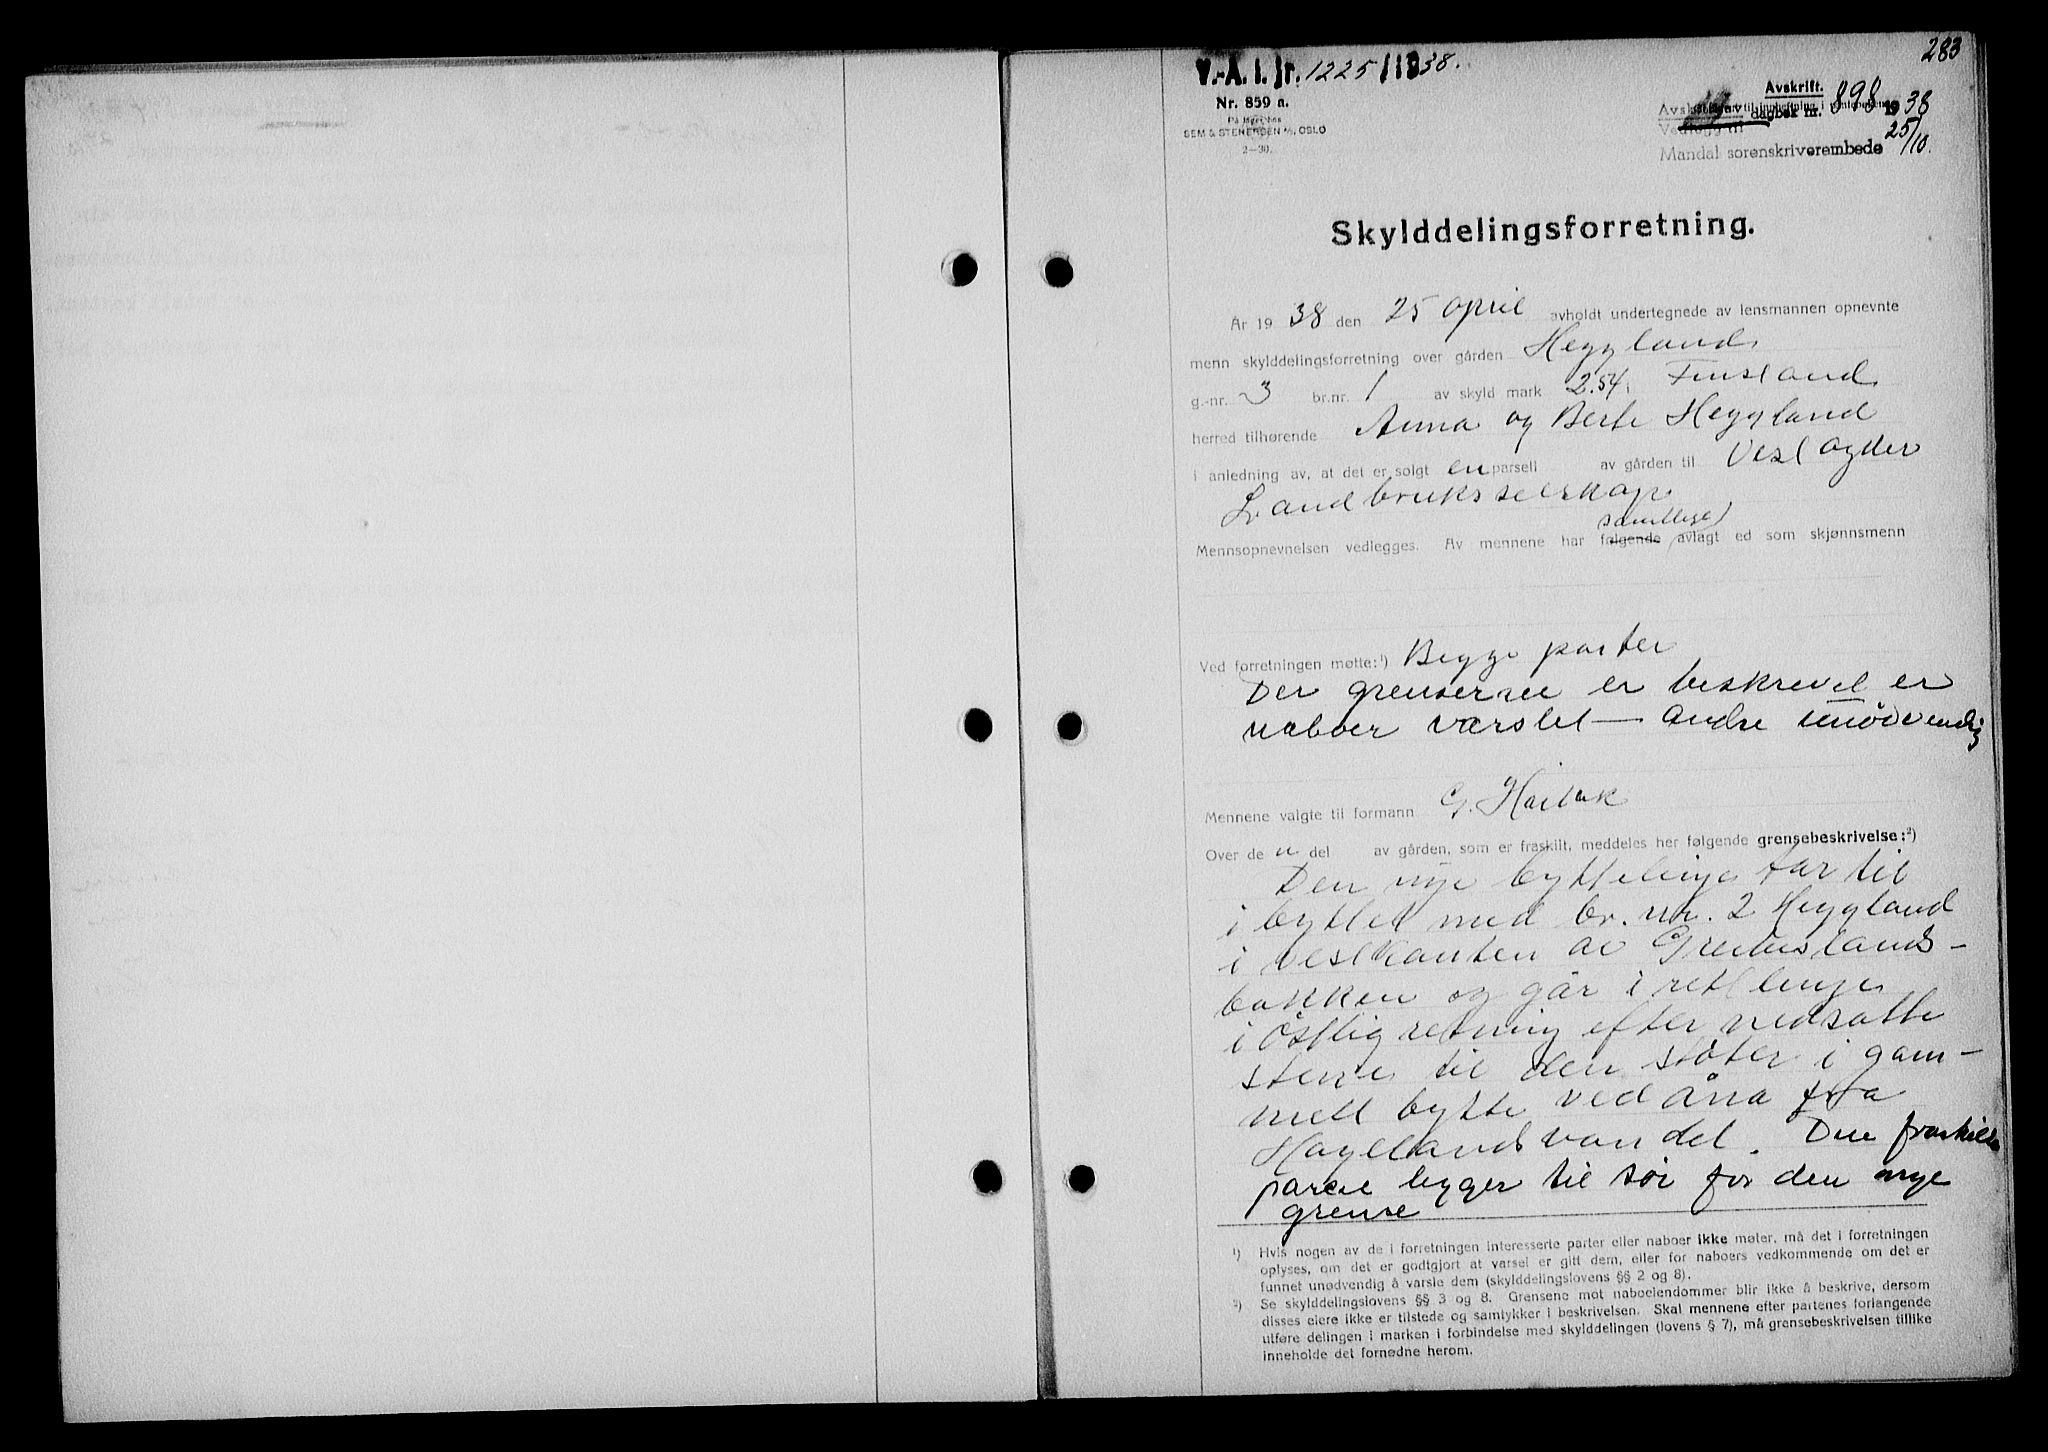 283
V.-A. l. Jr. 1225/1938.
Nr. 859 a.
SEM & STENERSEN A/S, OSLO
2—30.
Avskrift.
dagbok nr. 898 1938
Mandal sorenskriverembede 25/10.
Skylddelingsforretning.
År 1938 den 25 april avholdt undertegnede av lensmannen opnevnte
menn skylddelingsforretning over gården Heggland
g.-nr. 3 br.nr. 1 av skyld mark 2.54 i Finsland
herred tilhørende Anna og Berte Heggland
i anledning av, at det er solgt en parsell av gården til Vest agder
Landbruksselskap
samtlige
Mennsopnevnelsen vedlegges. Av mennene har følgende avlagt ed som skjønnsmenn
Ved forretningen møtte:¹) Begge parter
Der grenserne er beskrevet er
naboer varslet — andre unødvendig
Mennene valgte til formann G. Høibak
Over de n del av gården, som er fraskilt, meddeles her følgende grensebeskrivelse:²)
Den nye byttelinje tar til
i byttet med br. nr. 2 Heggland
i vestkanten av Greibeslands-
bakken og går i rett linje
i østlig retning efter nedsatte
stene til den støter i gam-
melt bytte ved åna fra
Høyelandsvandet. Den fraskilte
parsel ligger til sør for den nye
grense
¹) Hvis nogen av de i forretningen interesserte parter eller naboer ikke møter, må det i forretningen
oplyses, om det er godtgjort at varsel er gitt dem, eller for naboers vedkommende om det er
funnet unødvendig å varsle dem (skylddelingslovens §§ 2 og 8).
²) Se skylddelingslovens §§ 3 og 8. Grensene mot naboeiendommer blir ikke å beskrive, dersom
disses eiere ikke er tilstede og samtykker i beskrivelsen. Skal mennene efter partenes forlangende
utføre delingen i marken i forbindelse med skylddelingen (lovens § 7), må grensebeskrivelsen tillike
inneholde det fornødne herom.